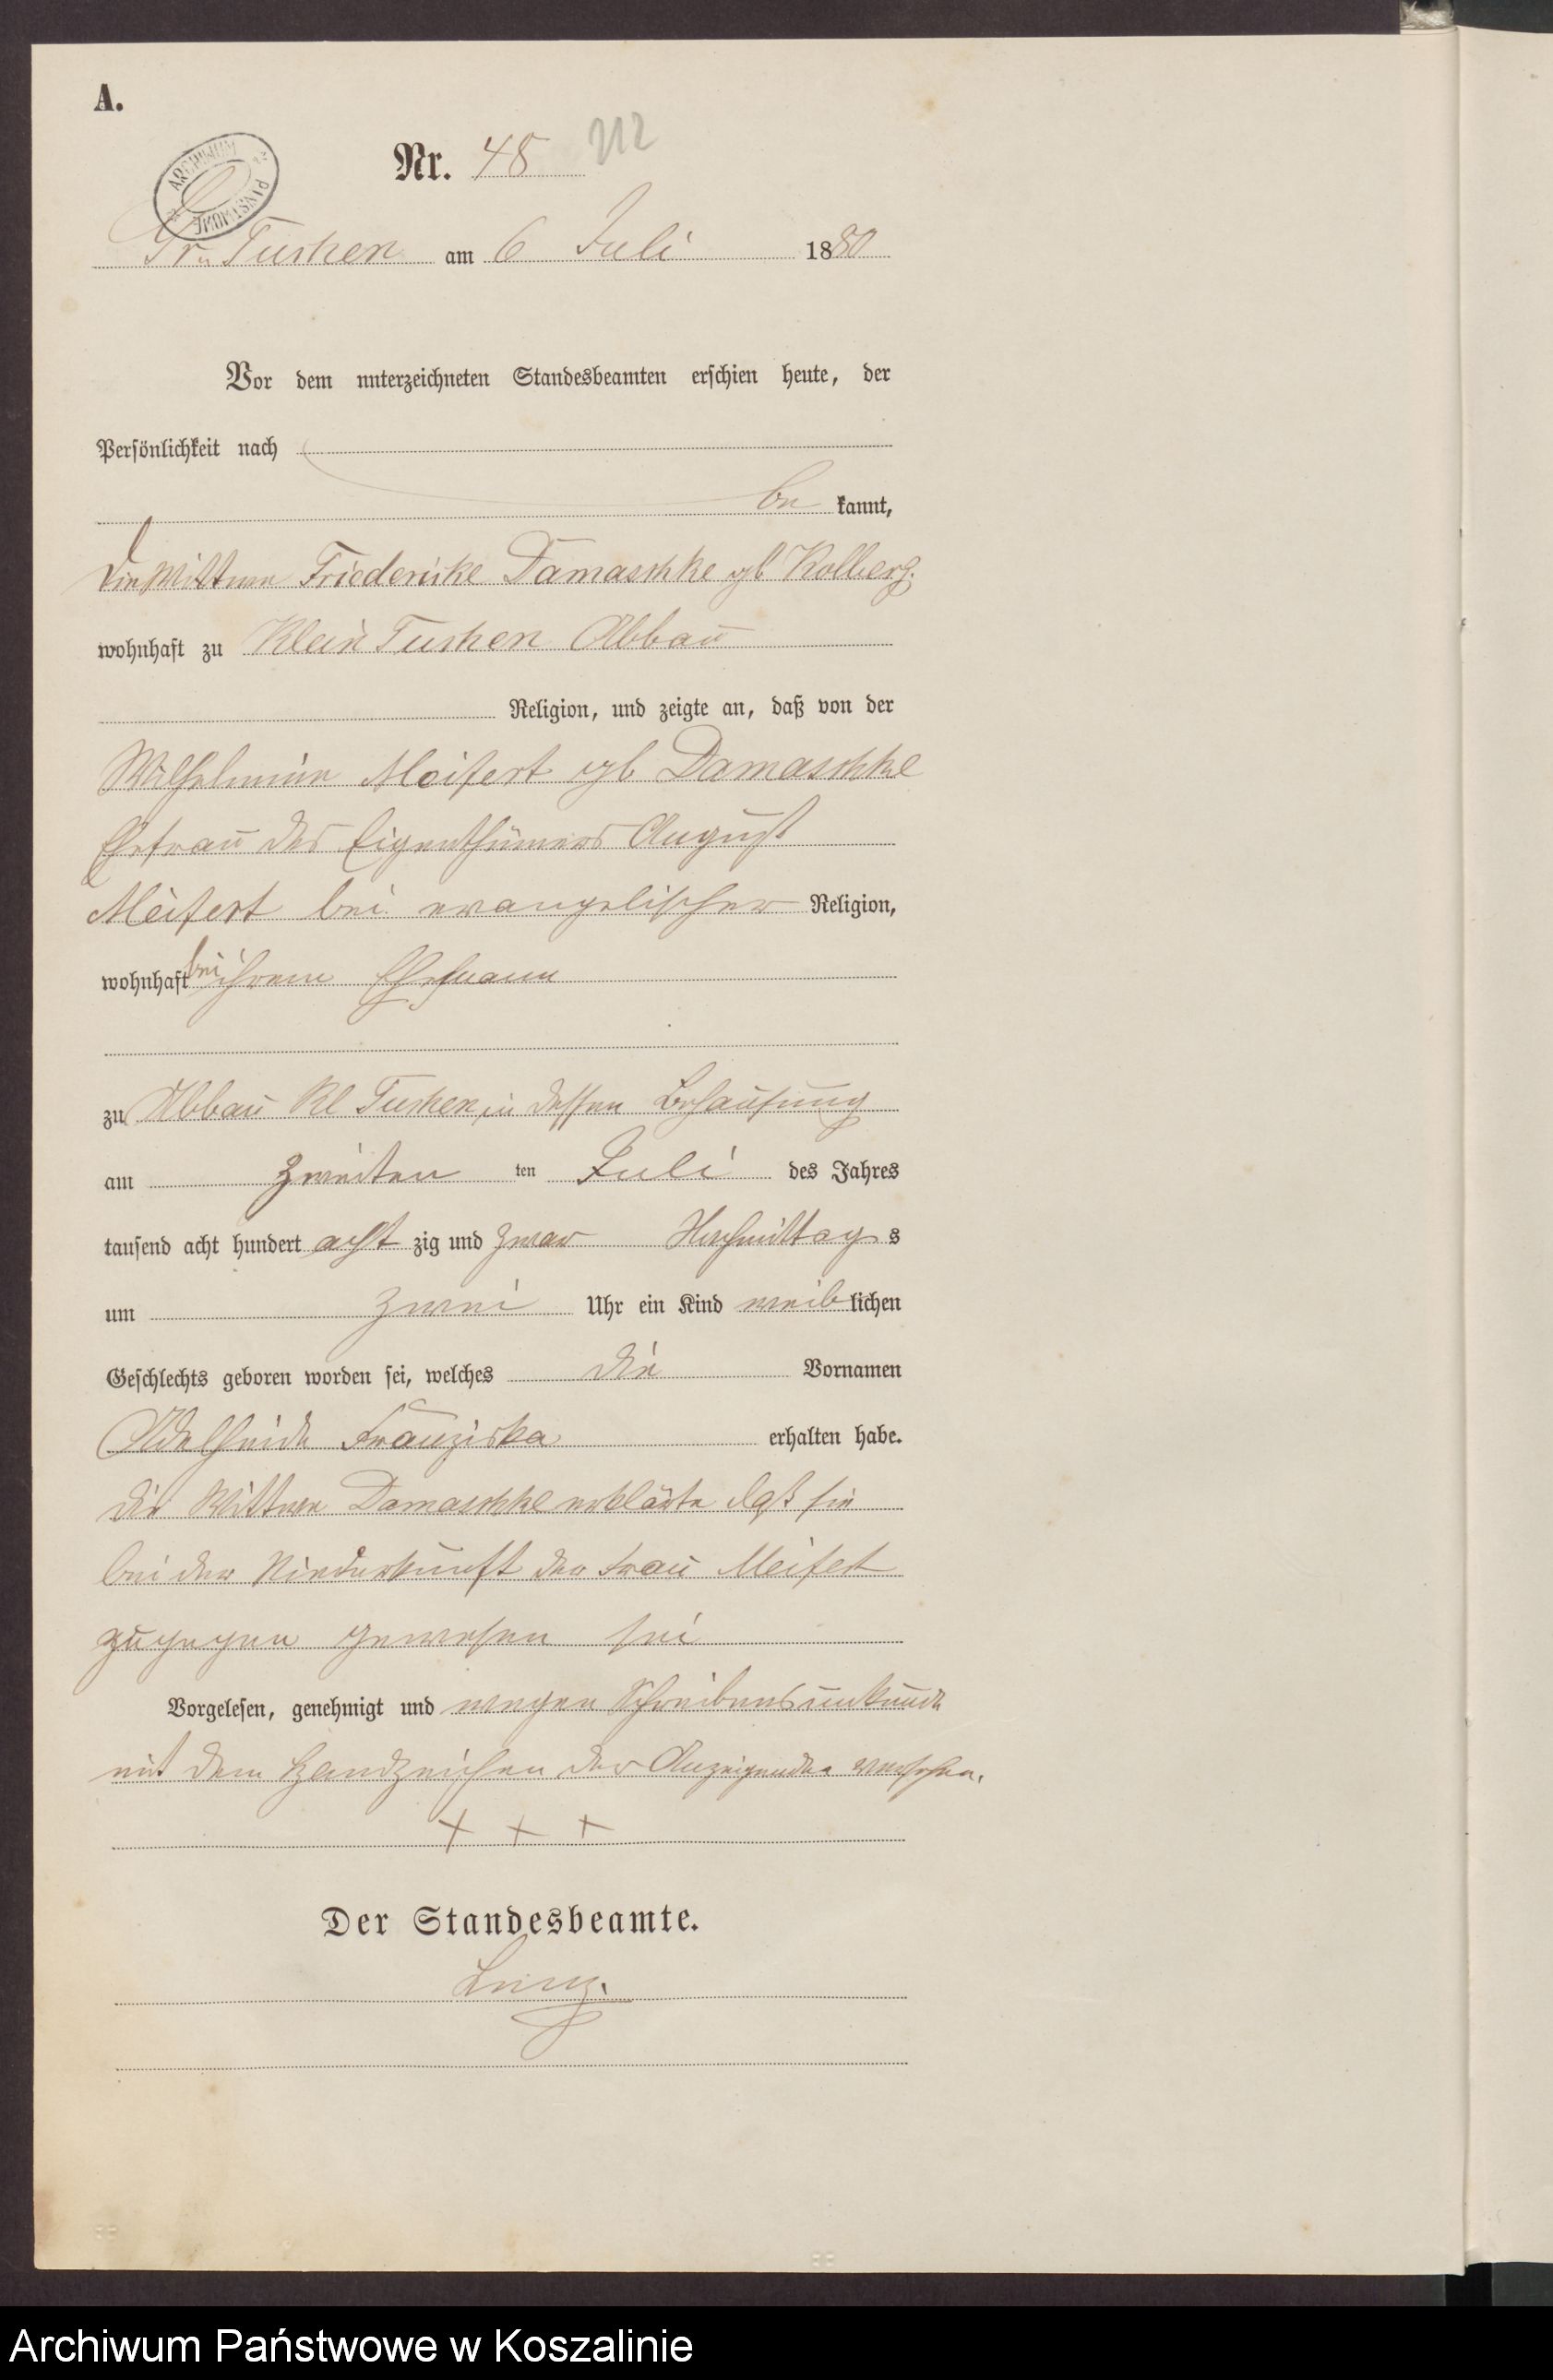 A.
ARCHIWUM PAŃSTWOWE
Nr. 48 212
Gr. Tuchen am 6 Juli 1880
Vor dem unterzeichneten Standesbeamten erschien heute, der
Persönlichkeit nach
be kannt,
die Wittwe Friedericke Damaschke gb Kolberg.
wohnhaft zu Klein Tuchen Abbau
Religion, und zeigte an, daß von der
Wilhelmine Meifert gb Damaschke
Ehefrau des Eigenthümers August
Meifert bei evangelischer Religion,
wohnhaft bei ihrem Ehemann
zu Abbau Kl Tuchen, in dessen Behausung
am zweiten ten Juli des Jahres
tausend acht hundert acht zig und zwar Nachmittag s
um zwei Uhr ein Kind weib lichen
Geschlechts geboren worden sei, welches die Vornamen
Adelheide Franziska erhalten habe.
Die Wittwe Damaschke erklärte daß sie
bei der Niederkunft der Frau Meifert
zugegen gewesen sei
Vorgelesen, genehmigt und wegen Schreibensunkunde
mit dem Handzeichen der Anzeigenden versehen.
+ + +
Der Standesbeamte.
Archiwum Państwowe w Koszalinie